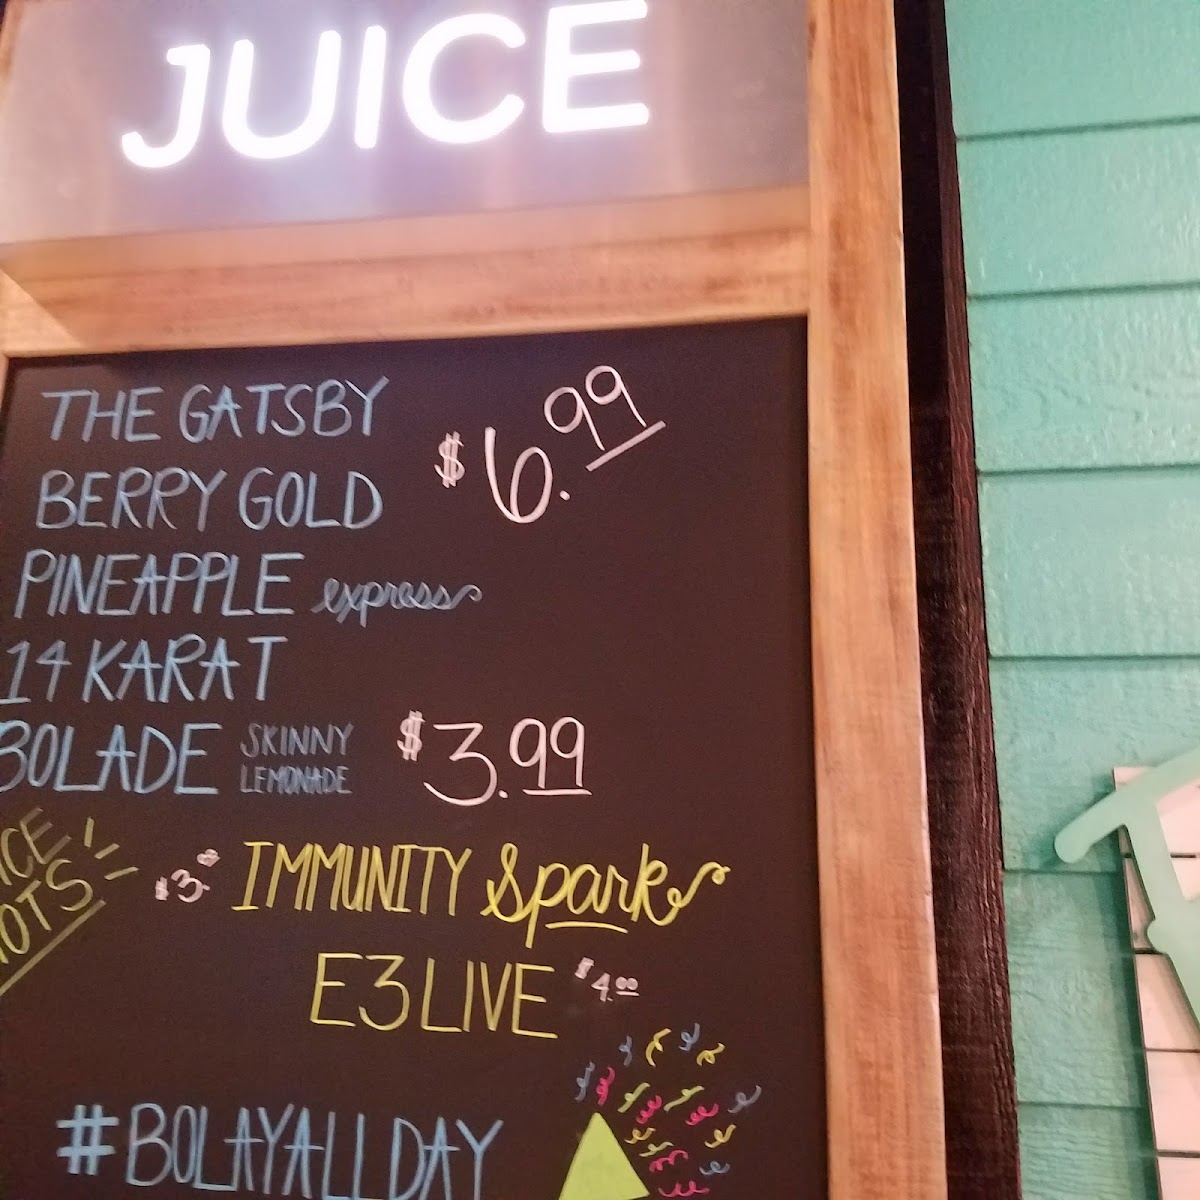 JUICE
THE GATSBY
$6.99
BERRY GOLD
PINEAPPLE express
14 KARAT
BOLADE SKINNY LEMONADE $3.99
$3.00 IMMUNITY Spark
E3LIVE $4.00
#BOLAYALLDAY